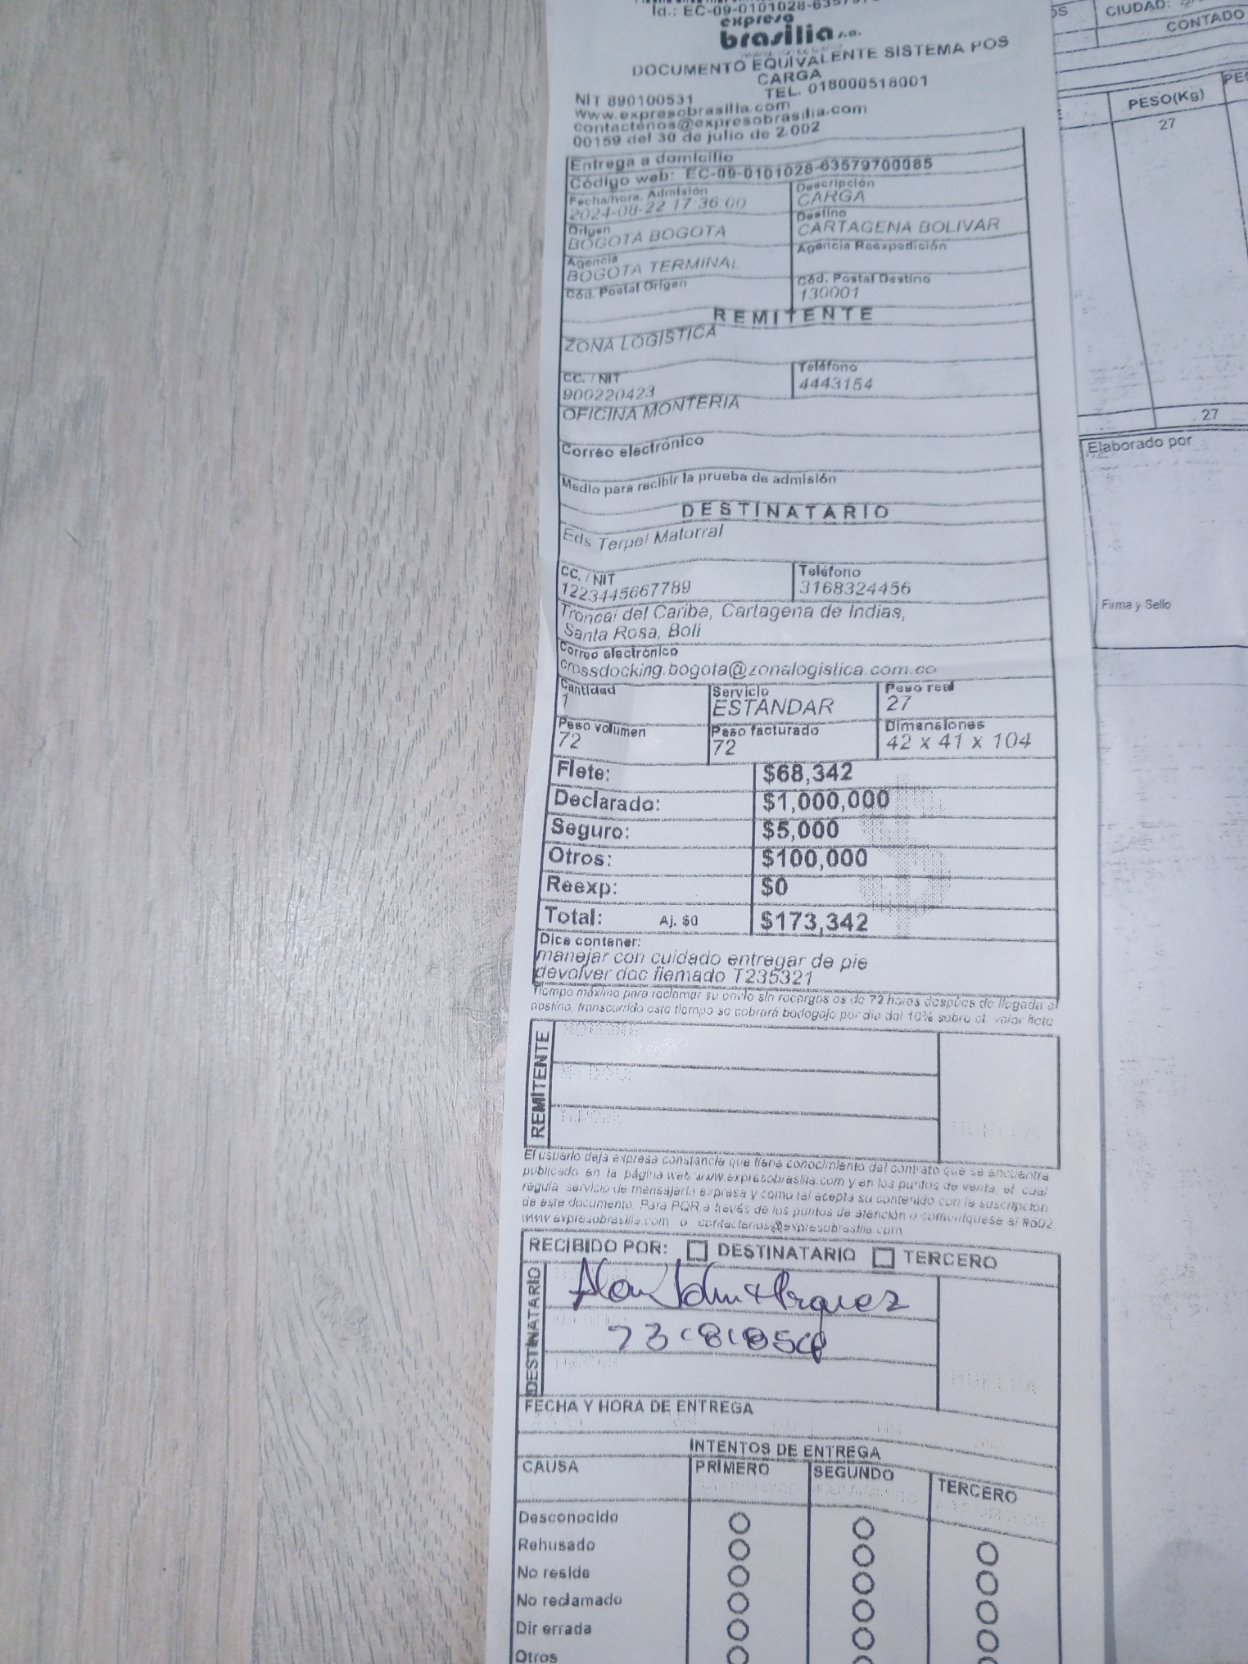 Id.: EC-09-0101028-63579700085
expreso
brasilia s.a.
DOCUMENTO EQUIVALENTE SISTEMA POS
CARGA
NIT 890100531 TEL. 018000518001
www.expresobrasilia.com
contactenos@expresobrasilia.com
00159 del 30 de julio de 2.002
Entrega a domicilio
Código web: EC-09-0101028-63579700085
Fecha/hora. Admisión Descripción
2024-08-22 17:36:00 CARGA
Origen Destino
BOGOTA BOGOTA CARTAGENA BOLIVAR
Agencia Agencia Reexpedición
BOGOTA TERMINAL
Cód. Postal Origen Cód. Postal Destino
130001
REMITENTE
ZONA LOGISTICA
CC. / NIT Teléfono
900220423 4443154
OFICINA MONTERIA
Correo electrónico
Medio para recibir la prueba de admisión
DESTINATARIO
Eds Terpel Matorral
CC. / NIT Teléfono
1223445667789 3168324456
Troncal del Caribe, Cartagena de Indias,
Santa Rosa, Boli
Correo electrónico
crossdocking.bogota@zonalogistica.com.co
Cantidad Servicio Peso real
1 ESTANDAR 27
Peso volumen Peso facturado Dimensiones
72 72 42 x 41 x 104
Flete: $68,342
Declarado: $1,000,000
Seguro: $5,000
Otros: $100,000
Reexp: $0
Total: Aj. $0 $173,342
Dice contener:
manejar con cuidado entregar de pie
devolver doc fiemado T235321
Tiempo máximo para reclamar su envío sin recargos es de 72 horas después de llegada al
destino, transcurrido este tiempo se cobrará bodegaje por día del 10% sobre el valor flete
REMITENTE
El usuario deja expresa constancia que tiene conocimiento del contrato que se encuentra
publicado en la página web www.expresobrasilia.com y en los puntos de venta, el cual
regula servicio de mensajería expresa y como tal acepta su contenido con la suscripción
de este documento. Para PQR a través de los puntos de atención o comuníquese al #602
www.expresobrasilia.com o contactenos@expresobrasilia.com
RECIBIDO POR: DESTINATARIO TERCERO
DESTINATARIO
FECHA Y HORA DE ENTREGA
INTENTOS DE ENTREGA
CAUSA PRIMERO SEGUNDO TERCERO
Desconocido
Rehusado
No reside
No reclamado
Dir errada
Otros
CIUDAD:
CONTADO
PESO(Kg)
27
27
Elaborado por
Firma y Sello